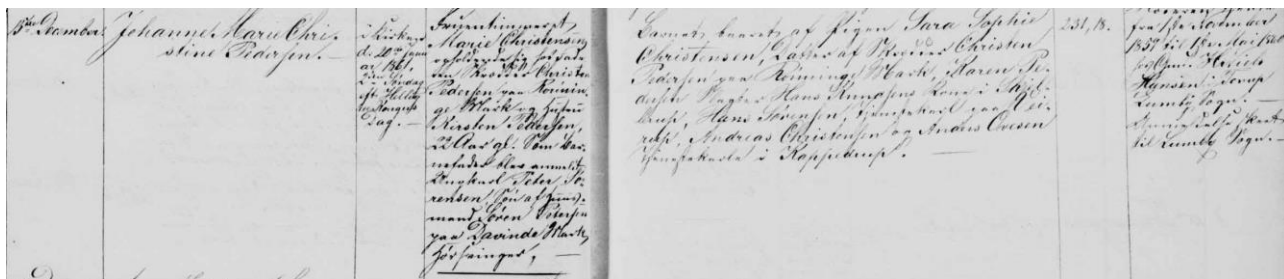 15de December.
Johanne Marie Chri-
stine Pedersen. —
i Kirken
d. 20de Janu
ar 1861,
2den Søndag
eft. Hellig
tre Kongers
Dag. —
Fruentimmeret
Marie Christensen,
opholdende sig hos
Christen
Pedersen paa Rønnin-
ge Mark og Hustru
Kirsten Pedersen,
22 Aar gl. Som Bar-
nefader blev anmeldt
Ungkarl Peter Sø-
rensen, Søn af Huus-
mand Søren Petersen
paa Davinde Mark,
Barnet baaret af Pigen Sara Sophie
Christensen, Datter af Christen
Pedersen paa Rønninge Mark, Karen Pe-
dersen, Hans Knudsens Kone i
Hans Sørensen, Tjenestekarl paa
Andreas Christensen og Anders Ovesen
Tjenestekarle i Kappendrup. —
231, 18.
Moderen tjente
fra 1ste November
1859 til 1ste Mai 1860
hos
Hansen i Torup
Lumby Sogn. —
til Lumby Sogn. —